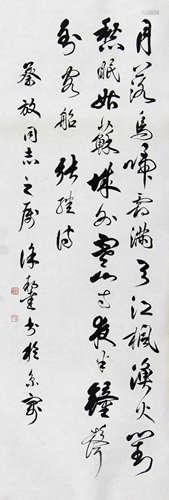 月落烏啼霜滿天江楓漁火對
愁眠姑蘇城外寒山寺夜半鐘聲
到客船 張繼詩
蔡放同志之屬 書於京寓